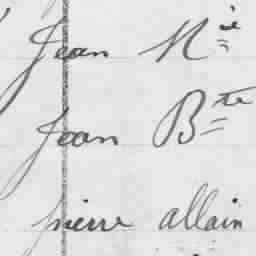 Jean Nie
Jean Bte
pierre allain